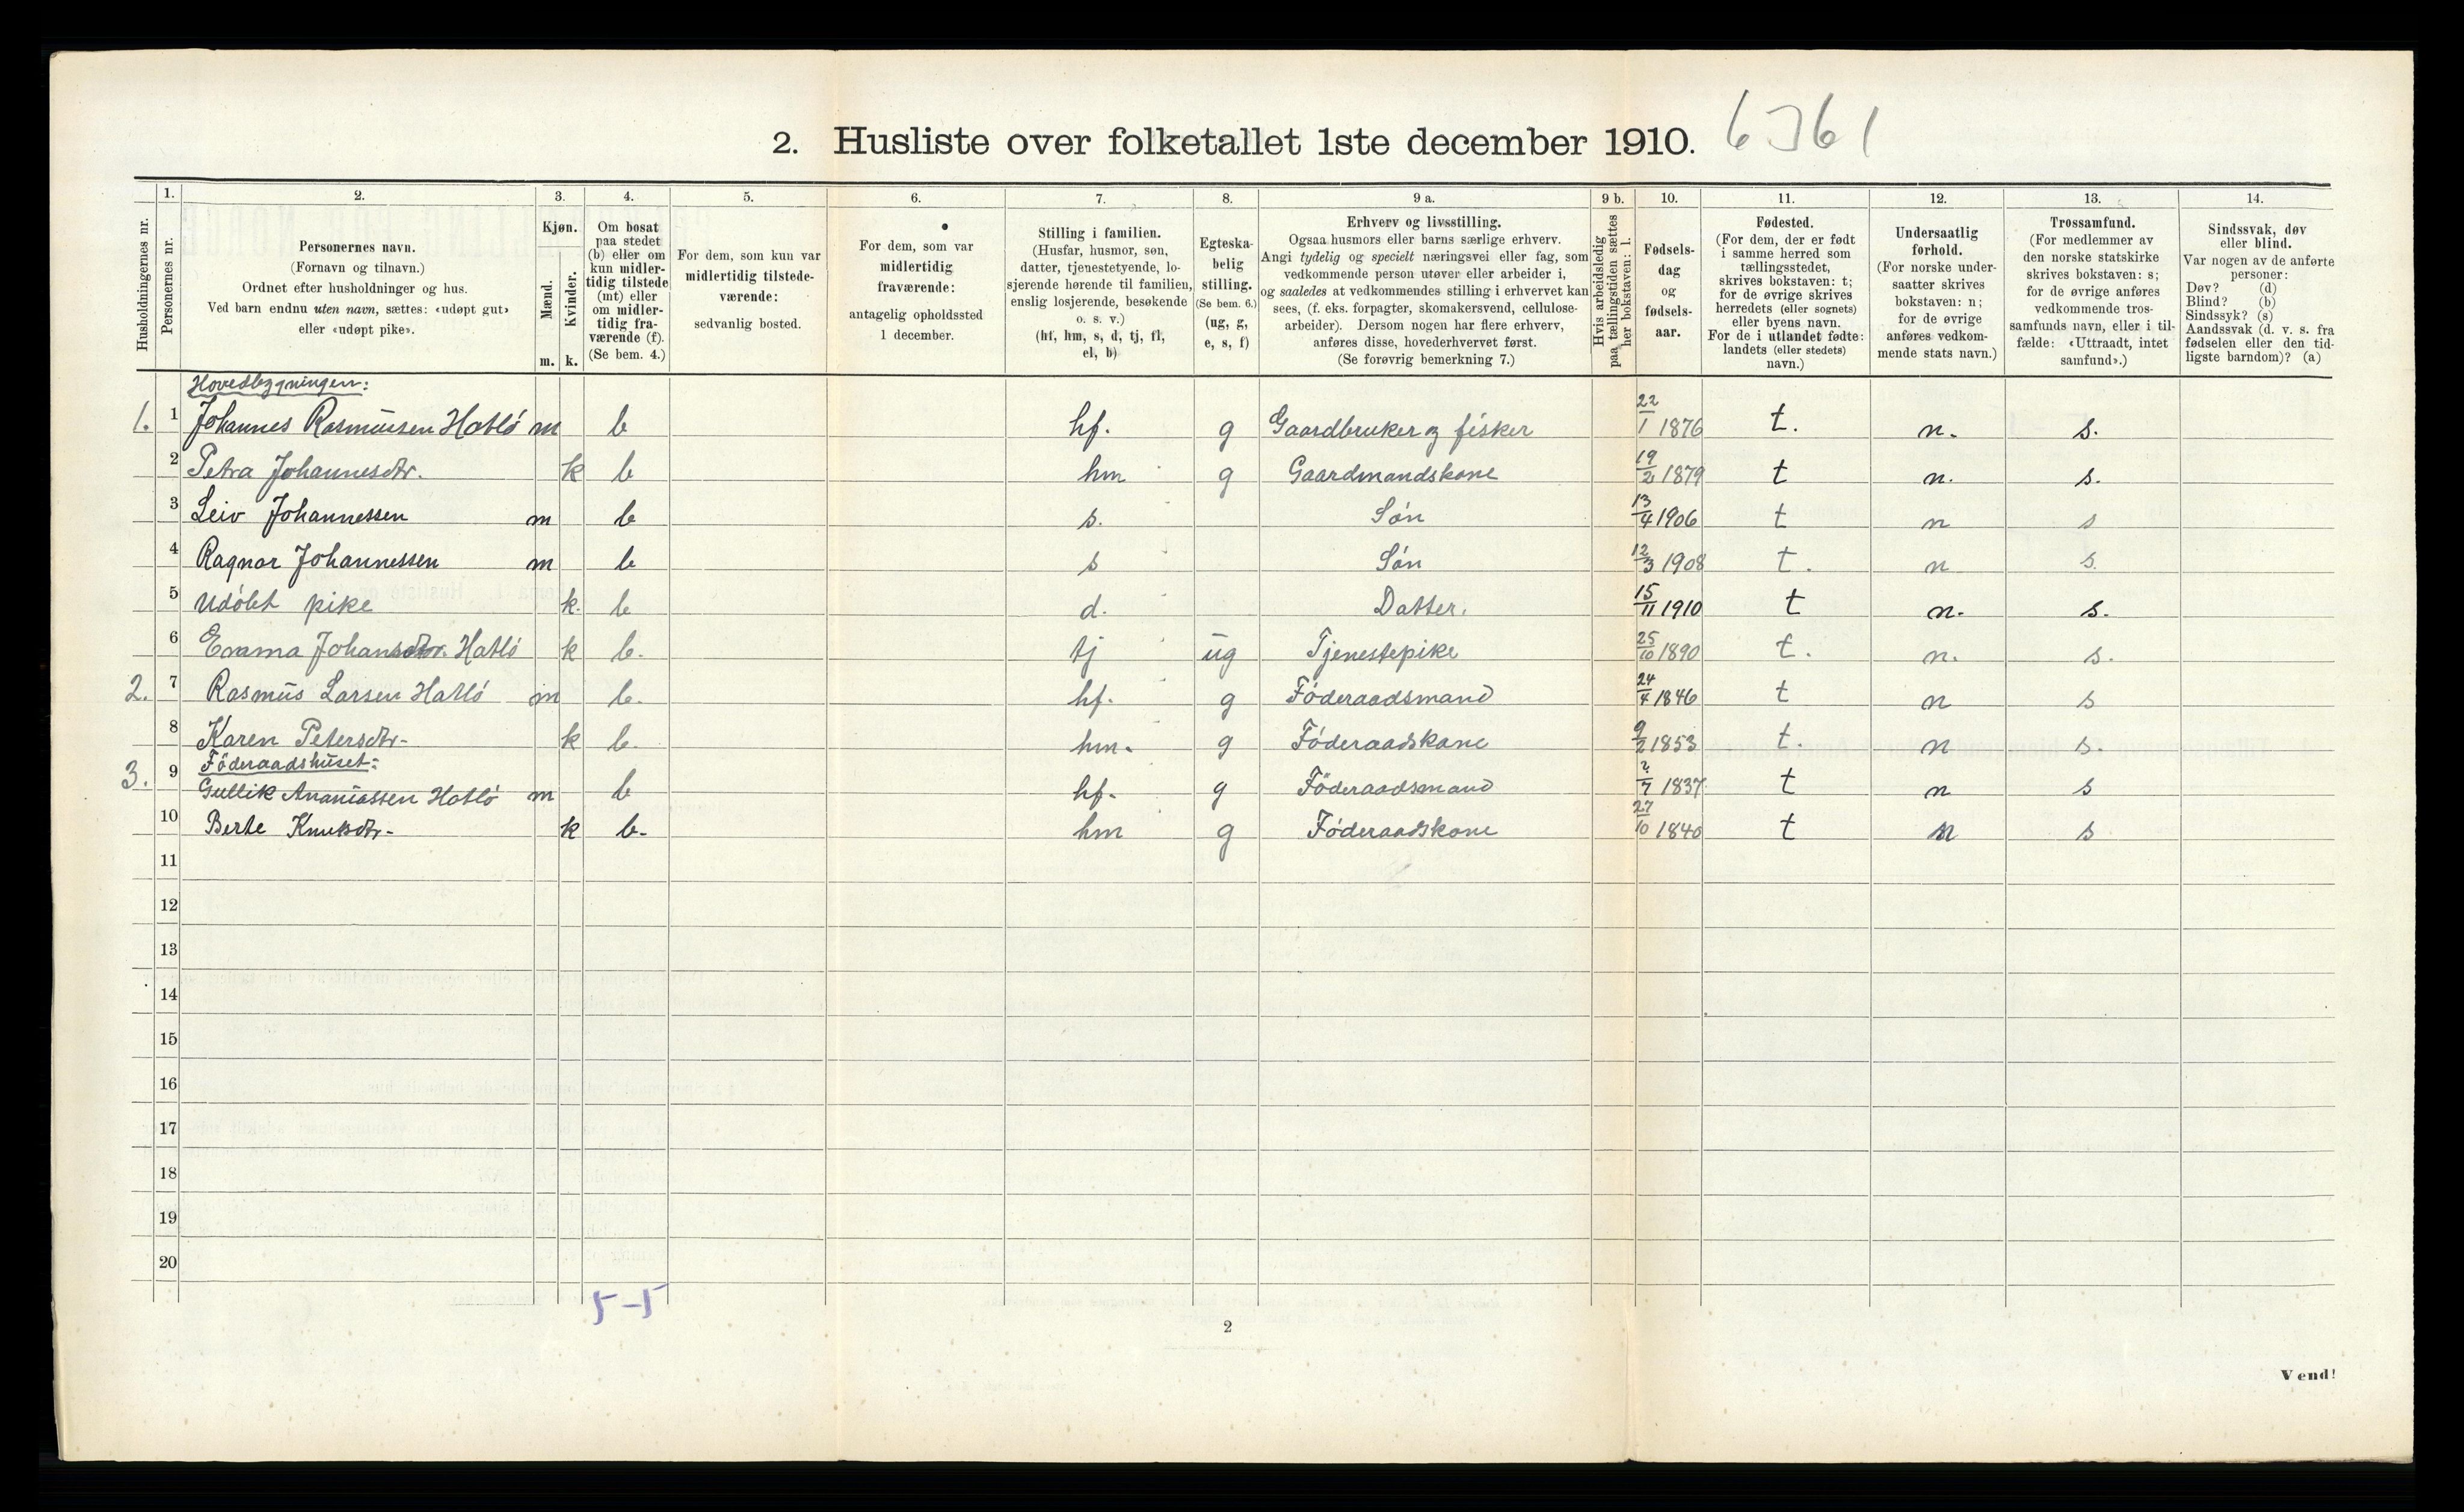 2. Husliste over folketallet 1ste december 1910. 6361
Husholdningernes nr.
1. Personernes nr.
2. Personernes navn. (Fornavn og tilnavn.) Ordnet efter husholdninger og hus. Ved barn endnu uten navn, sættes: «udøpt gut» eller «udøpt pike».
3. Kjøn. Mænd. m. Kvinder. k.
4. Om bosat paa stedet (b) eller om kun midlertidig tilstede (mt) eller om midlertidig fraværende (f). (Se bem. 4.)
5. For dem, som kun var midlertidig tilstedeværende: sedvanlig bosted.
6. For dem, som var midlertidig fraværende: antagelig opholdssted 1 december.
7. Stilling i familien. (Husfar, husmor, søn, datter, tjenestetyende, losjerende hørende til familien, enslig losjerende, besøkende o. s. v.) (hf, hm, s, d, tj, fl, el, b)
8. Egteskabelig stilling. (Se bem. 6.) (ug, g, e, s, f)
9 a. Erhverv og livsstilling. Ogsaa husmors eller barns særlige erhverv. Angi tydelig og specielt næringsvei eller fag, som vedkommende person utøver eller arbeider i, og saaledes at vedkommendes stilling i erhvervet kan sees, (f. eks. forpagter, skomakersvend, cellulosearbeider). Dersom nogen har flere erhverv, anføres disse, hovederhvervet først. (Se forøvrig bemerkning 7.)
9 b. Hvis arbeidsledig paa tællingstiden sættes her bokstaven: l.
10. Fødselsdag og fødselsaar.
11. Fødested. (For dem, der er født i samme herred som tællingsstedet, skrives bokstaven: t; for de øvrige skrives herredets (eller sognets) eller byens navn. For de i utlandet fødte: landets (eller stedets) navn.)
12. Undersaatlig forhold. (For norske undersaatter skrives bokstaven: n; for de øvrige anføres vedkommende stats navn.)
13. Trossamfund. (For medlemmer av den norske statskirke skrives bokstaven: s; for de øvrige anføres vedkommende trossamfunds navn, eller i tilfælde: «Uttraadt, intet samfund».)
14. Sindssvak, døv eller blind. Var nogen av de anførte personer: Døv? (d) Blind? (b) Sindssyk? (s) Aandssvak (d. v. s. fra fødselen eller den tidligste barndom)? (a)
Hovedbygningen:
1. 1 Johannes Rasmussen Hatlö m b hf. g Gaardbruker og fisker 22/1 1876 t. n. s.
2 Petra Johannesdtr. k b hm g Gaardmandskone 19/2 1879 t n. s.
3 Leiv Johannessen m b s. Sön 13/4 1906 t n s
4 Ragnar Johannessen m b s Sön 12/3 1908 t. n s.
5 Udöbt pike k. b d. Datter. 15/11 1910 t n. s.
6 Emma Johansdtr. Hatlö k b. tj ug Tjenestepike 25/10 1890 t. n. s.
2. 7 Rasmus Larsen Hatlö m b. hf. g Föderaadsmand 24/4 1846 t n s
8 Karen Petersdtr- k b. hm. g Föderaadskone 9/2 1853 t. n s.
Föderaadshuset:
3. 9 Gullik Ananiassen Hatlö m b hf. g Föderaadsmand ?/7 1837 t n s
10 Berte Knutsdtr- k b- hm g Föderaadskone 27/10 1840 t n s
11
12
13
14
15
16
17
18
19
20
5-5
2
Vend!